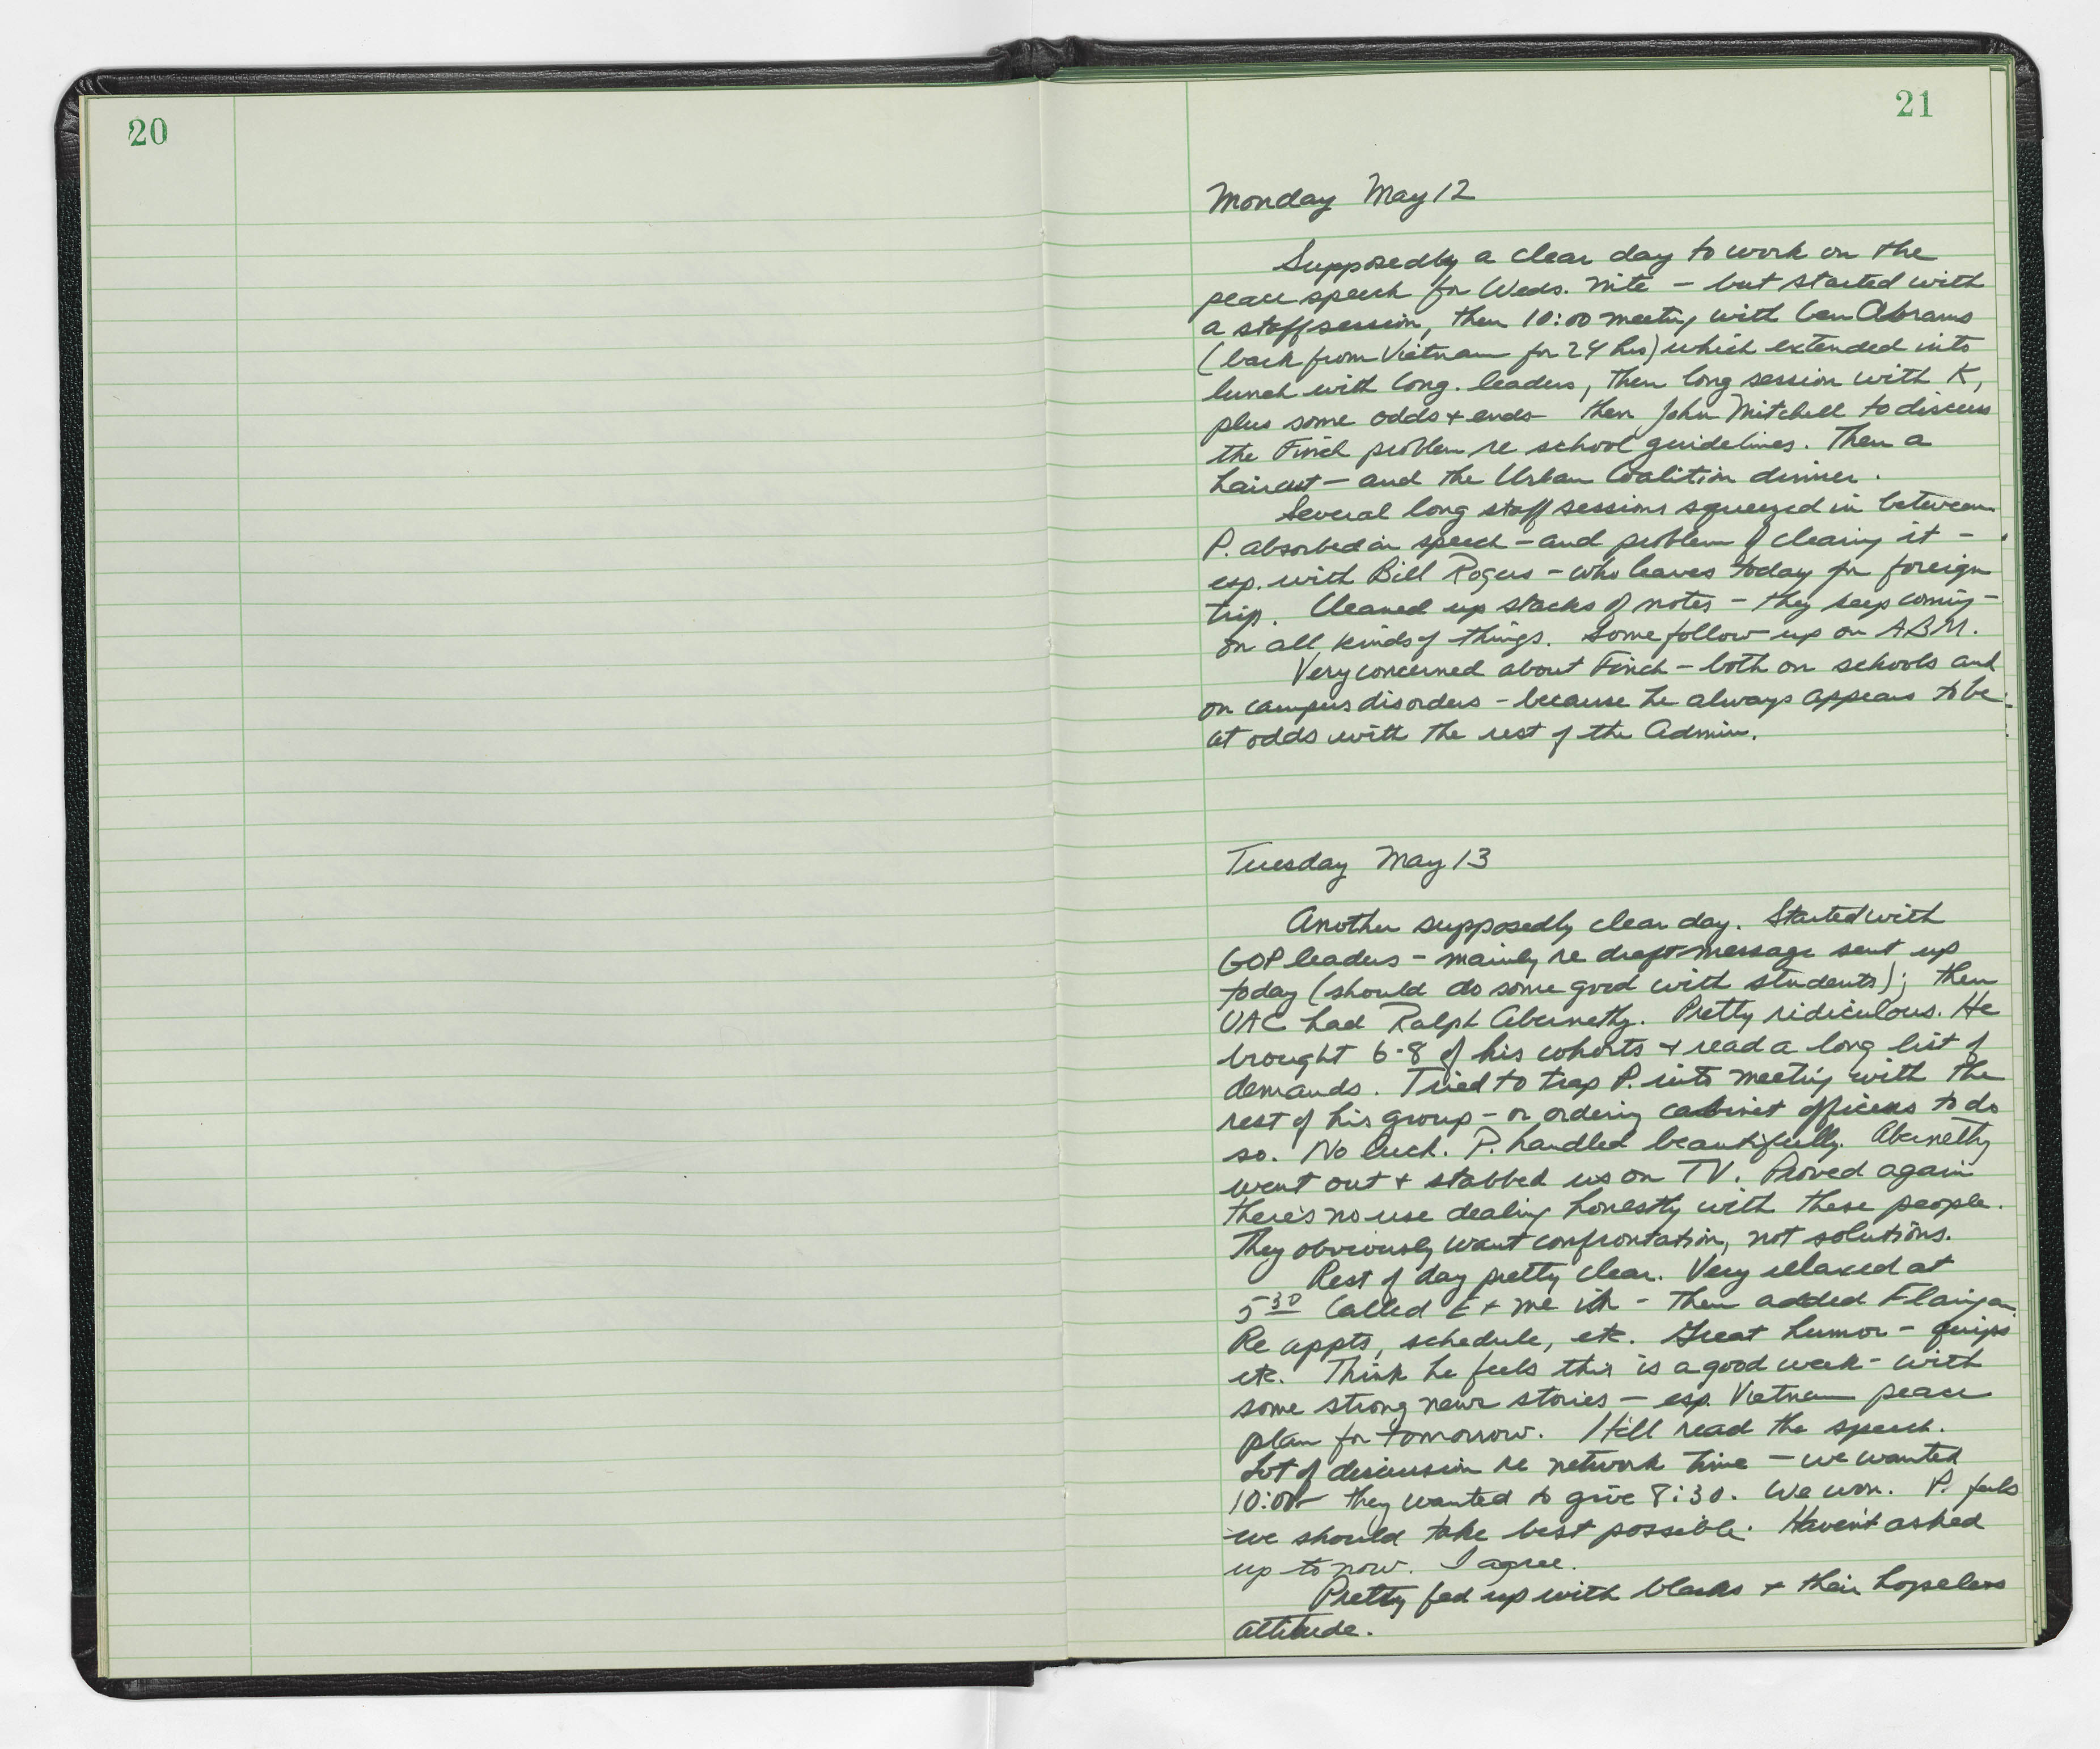 20
21
Monday May 12
Supposedly a clear day to work on the
peace speech for Weds. nite – but started with
a staff session, then 10:00 meeting with Gen Abrams
(back from Vietnam for 24 hrs) which extended into
lunch with Cong. leaders, then long session with K,
plus some odds + ends – then John Mitchell to discuss
the Finch problem re school guidelines. Then a
haircut – and the Urban Coalition dinner.
Several long staff sessions squeezed in between.
P. absorbed in speech – and problem of clearing it –
esp. with Bill Rogers – who leaves today for foreign
trip. Cleaned up stacks of notes – they keep coming –
on all kinds of things. Some follow-up on ABM.
Very concerned about Finch – both on schools and
on campus disorders – because he always appears to be
at odds with the rest of the Admin.
Tuesday May 13
Another supposedly clear day. Started with
GOP leaders – mainly re draft message sent up
today (should do some good with students); then
UAC had Ralph Abernathy. Pretty ridiculous. He
brought 6-8 of his cohorts + read a long list of
demands. Tried to trap P. into meeting with the
rest of his group – or ordering cabinet officers to do
so. No luck. P. handled beautifully. Abernathy
went out + stabbed us on TV. Proved again
there's no use dealing honestly with these people.
They obviously want confrontation, not solutions.
Rest of day pretty clear. Very relaxed at
5 30 Called E + me in – then added Flanigan.
Re appts, schedule, etc. Great humor – quips
etc. Think he feels this is a good week – with
some strong news stories – esp. Vietnam peace
plan for tomorrow. Still read the speech.
Lot of discussion re network time – we wanted
10:00 – they wanted to give 8:30. We won. P. feels
we should take best possible. Haven't asked
up to now. I agree.
Pretty fed up with blacks + their hopeless
attitude.